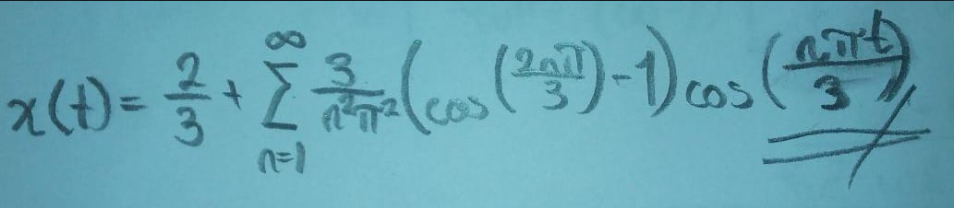 x(t) = 2/3 + ∑_{n=1}^{∞} 3/(n²π²) (cos(2nπ/3) - 1) cos(nπt/3)